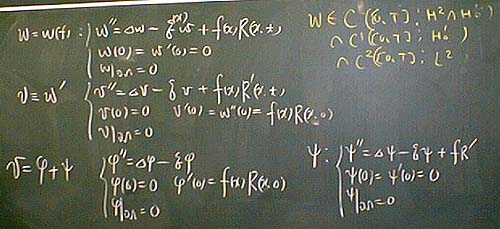 w = w(f) : { w'' = Δw - q(x) w + f(x)R(x,t)
w(0) = w'(0) = 0
w|∂Ω = 0
w ∈ C([0,T] ; H² ∩ H₀¹)
∩ C¹([0,T] ; H₀¹)
∩ C²([0,T] ; L²
v = w' { v'' = Δv - q v + f(x)R'(x,t)
v(0) = 0 v'(0) = w''(0) = f(x)R(x,0)
v|∂Ω = 0
v = φ + ψ { φ'' = Δφ - qφ
φ(0) = 0 φ'(0) = f(x)R(x,0)
φ|∂Ω = 0
ψ : { ψ'' = Δψ - qψ + fR'
ψ(0) = ψ'(0) = 0
ψ|∂Ω = 0